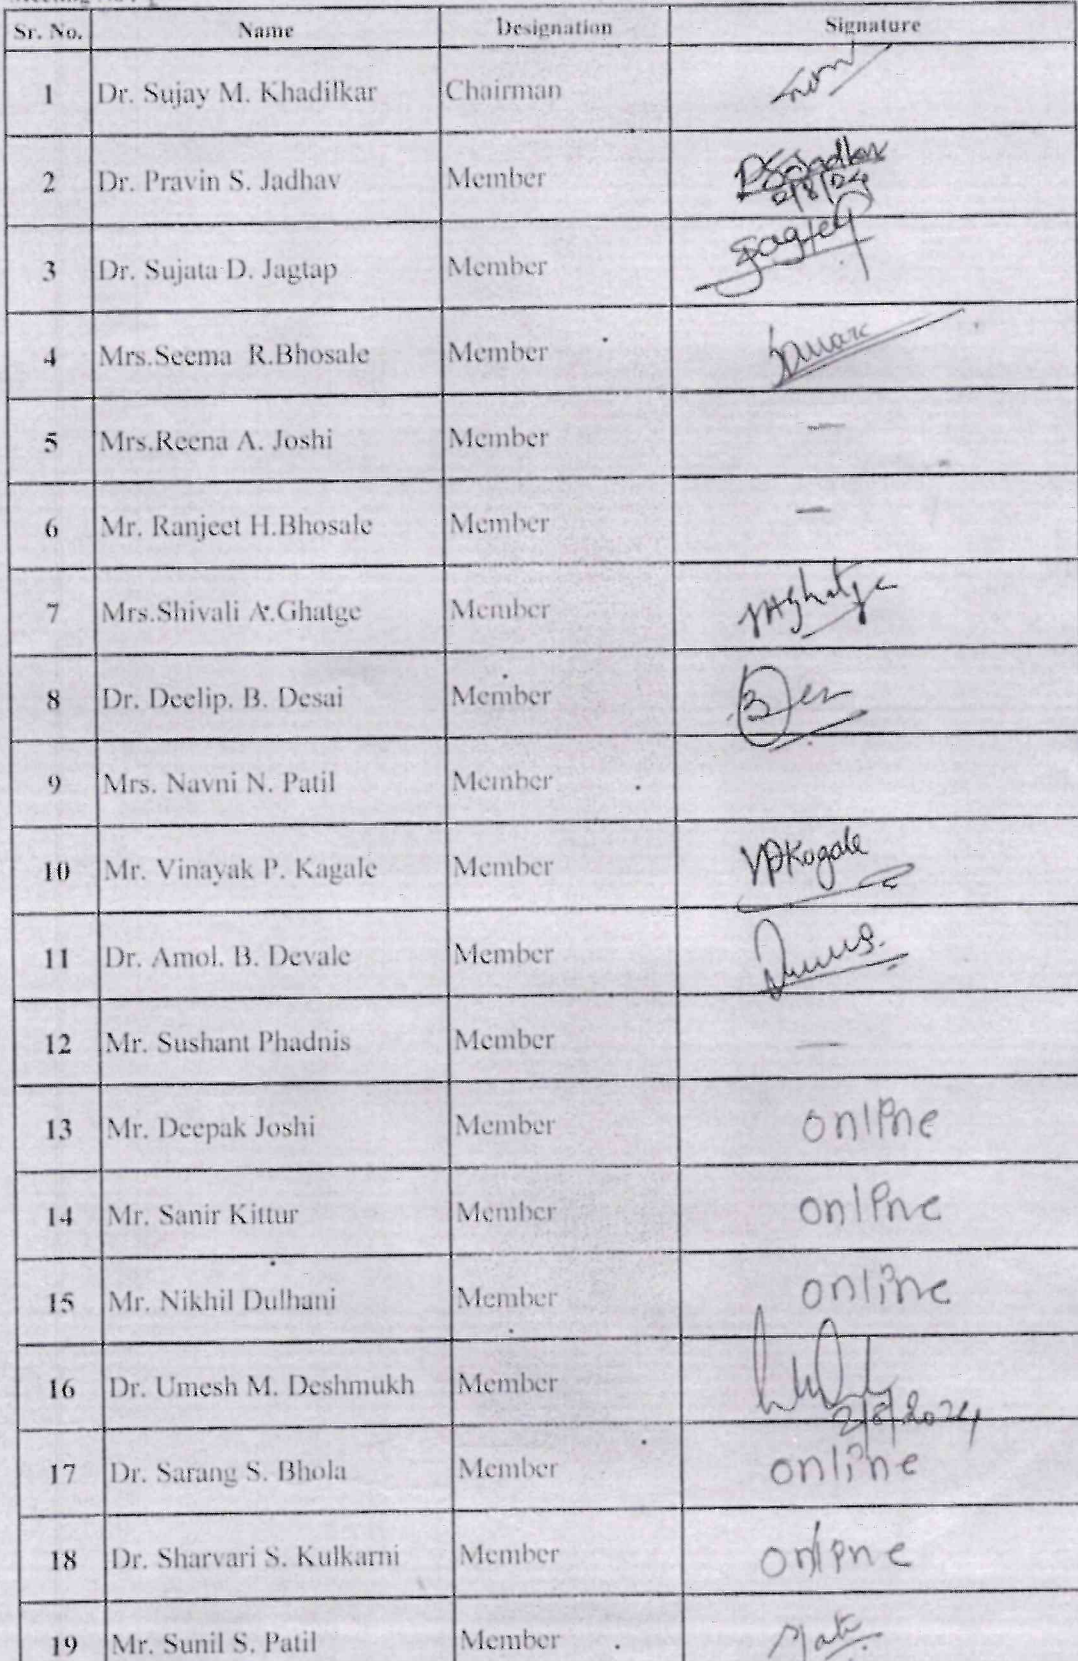 Sr. No. Name Designation Signature
1 Dr. Sujay M. Khadilkar Chairman
2 Dr. Pravin S. Jadhav Member PSJadhav
2/8/24
3 Dr. Sujata D. Jagtap Member
4 Mrs.Seema R.Bhosale Member
5 Mrs.Reena A. Joshi Member —
6 Mr. Ranjeet H.Bhosale Member —
7 Mrs.Shivali A.Ghatge Member
8 Dr. Deelip. B. Desai Member
9 Mrs. Navni N. Patil Member
10 Mr. Vinayak P. Kagale Member VPKagale
11 Dr. Amol. B. Devale Member
12 Mr. Sushant Phadnis Member —
13 Mr. Deepak Joshi Member online
14 Mr. Sanir Kittur Member online
15 Mr. Nikhil Dulhani Member online
16 Dr. Umesh M. Deshmukh Member
2/8/2024
17 Dr. Sarang S. Bhola Member online
18 Dr. Sharvari S. Kulkarni Member online
19 Mr. Sunil S. Patil Member